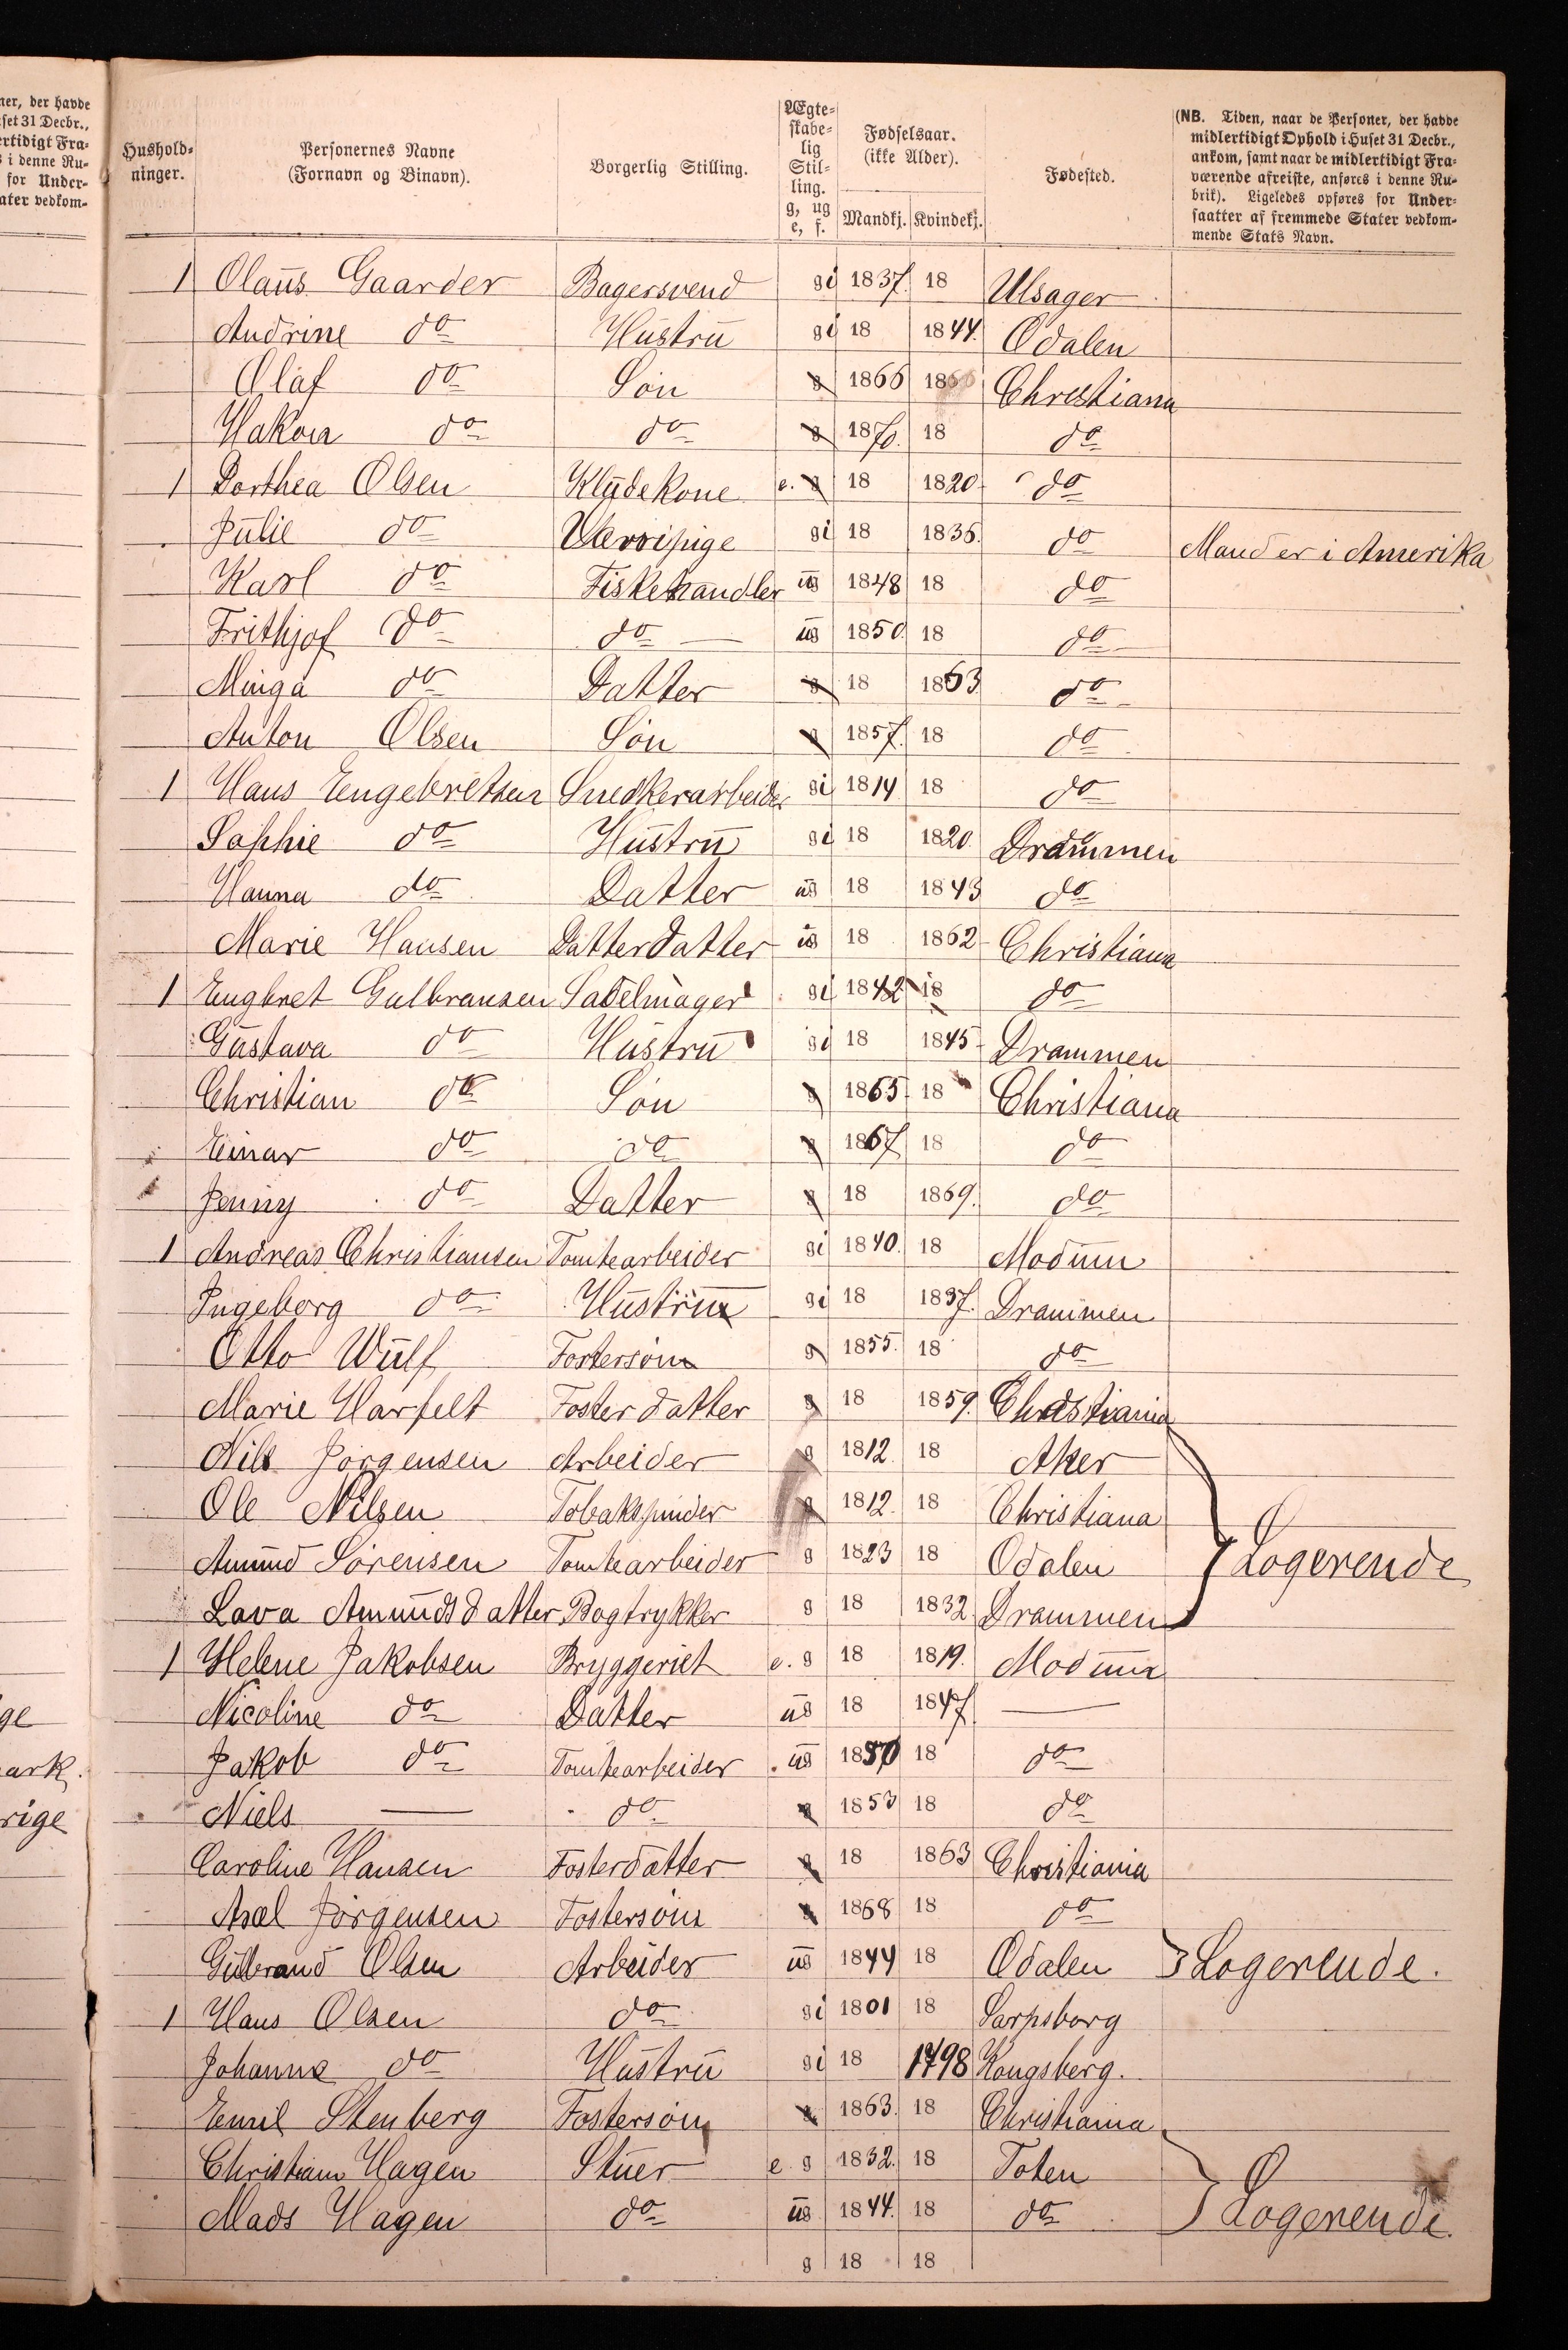 ner, der havde
set 31 Decbr.,
ertidigt Fra-
s i denne Ru-
for Under-
ater vedkom-
ge
ark.
rige
Hushold-
ninger.
Personernes Navne
(Fornavn og Binavn).
Borgerlig Stilling.
Ægte-
skabe-
lig
Stil-
ling.
g, ug
e, f.
Fødselsaar.
(ikke Alder).
Mandkj. Kvindekj.
Fødested.
(NB. Tiden, naar de Personer, der havde
midlertidigt Ophold i Huset 31 Decbr.,
ankom, samt naar de midlertidigt Fra-
værende afreiste, anføres i denne Ru-
brik). Ligeledes opføres for Under-
saatter af fremmede Stater vedkom-
mende Stats Navn.
1 Olaus Gaarder Bagersvend gi 1837. 18 Ulsager
Andrine do Hustru gi 18 1844. Odalen
Olaf do Søn g 1866 18 Christiana
Hakon do do g 1870. 18 do
1 Dorthea Olsen Klüdekone e. g 18 1820 do
Julie do gi 18 1836. do Mand er i Amerika
Karl do Fiskehandler ug 1848 18 do
Frithjof do do ug 1850 18 do
Minga do Datter g 18 1863 do
Anton Olsen Søn g 1857. 18 do
1 Hans Engebretsen Snedkerarbeider gi 1814 18 do
Sophie do Hustru gi 18 1820 Drammen
Hanna do Datter ug 18 1843 do
Marie Hansen Datterdatter ug 18 1862 Christiana
1 Engbret Gulbransen Sadelmager gi 1842 18 do
Gustava do Hustru gi 18 1845 Drammen
Christian do Søn g 1865. 18 Christiana
Einar do do g 1867 18 do
Jenny do Datter g 18 1869. do
1 Andreas Christiansen Tomtearbeider gi 1840. 18 Modum
Ingeborg do Hustru gi 18 1837. Drammen
Otto Wulf Fostersøn g 1855. 18 do
Marie Harfelt Fosterdatter g 18 1859. Christiania
Nils Jørgensen Arbeider g 1812 18 Aker
Ole Nilsen Tobakspinder g 1812. 18 Christiana
Amund Sørensen Tomtearbeider g 1823 18 Odalen } Logerende
Lava Amundsdatter Bogtrykker g 18 1832 Drammen
1 Helene Jakobsen Bryggeriet e. g 18 1819. Modum
Nicoline do Datter ug 18 1847 —
Jakob do Tomtearbeider ug 1850 18 do
Niels — do g 1853 18 do
Caroline Hansen Fosterdatter g 18 1863 Christiania
Axel Jørgensen Fostersøn g 1868 18 do
Gulbrand Olsen Arbeider ug 1844 18 Odalen } Logerende.
1 Hans Olsen do gi 1801 18 Sarpsborg
Johanne do Hustru gi 18 1798 Kongsberg.
Emil Stenberg Fostersøn g 1863. 18 Christiania
Christian Hagen Stuer e g 1832. 18 Toten
Mads Hagen do ug 1844. 18 do } Logerende.
g 18 18